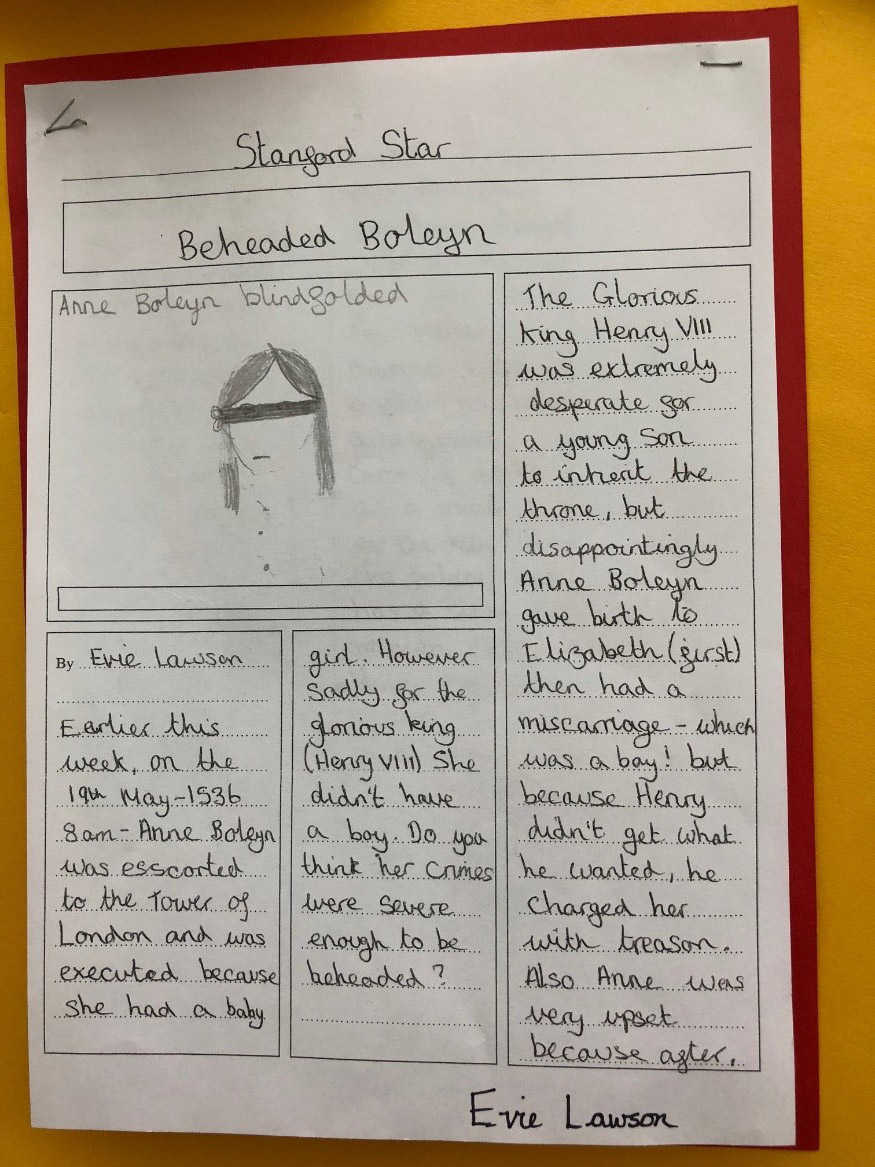 Stanford Star
Beheaded Boleyn
Anne Boleyn blindfolded
By Evie Lawson
Earlier this
week, on the
19th May-1536
8am- Anne Boleyn
was esscorted
to the Tower of
London and was
executed because
she had a baby
girl. However
Sadly for the
glorious king
(Henry VIII) She
didn't have
a boy. Do you
think her crimes
were severe
enough to be
beheaded?
The Glorious
king Henry VIII
was extremely
desperate for
a young son
to inherit the
throne, but
disappointingly
Anne Boleyn
gave birth to
Elizabeth (first)
then had a
miscarriage - which
was a boy! but
because Henry
didn't get what
he wanted, he
charged her
with treason.
Also Anne was
very upset
because after.
Evie Lawson